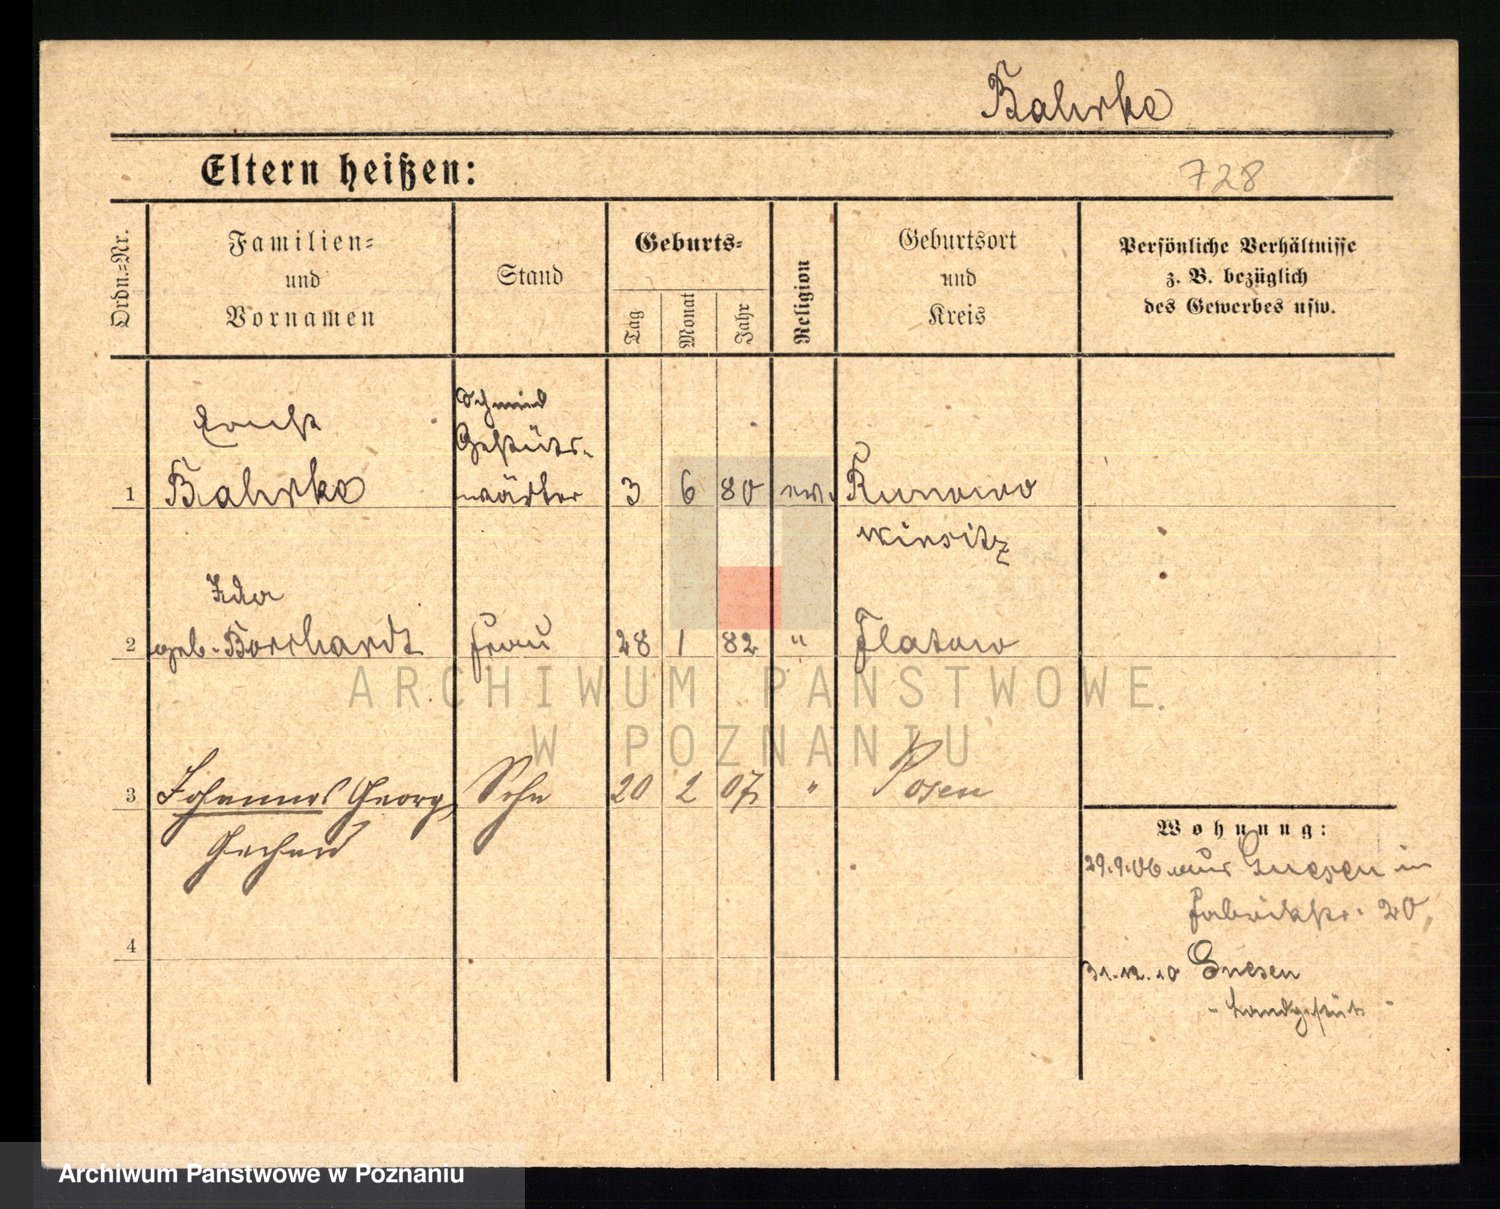 Bahrke
Eltern heißen:
728
Ordn.=Nr.
Familien=
und
Vornamen
Stand
Geburts=
Tag
Monat
Jahr
Religion
Geburtsort
und
Kreis
Persönliche Verhältnisse
z. B. bezüglich
des Gewerbes usw.
Schmied
Ernst
Gestüts-
1 Bahrke wärter 3 6 80 ev. Runowo
Wirsitz
Ida
2 geb. Borchardt Frau 28 1 82 " Flatow
ARCHIWUM PAŃSTWOWE
W POZNANIU
3 Johannes Georg Sohn 20 2 07 " Posen
Gerhard
Wohnung:
29.9.06 aus Gnesen in
Fabrikstr. 20,
4
31.12.10 Gnesen
- Landgestüt -
Archiwum Państwowe w Poznaniu